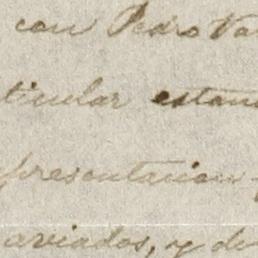 con Pedro Va
ticular estan
presentacion
aviados, y de